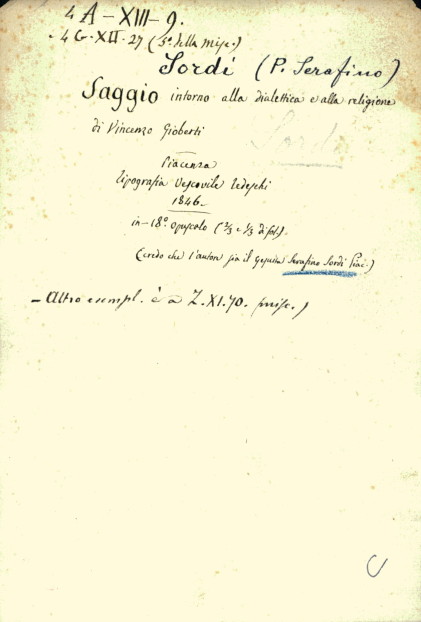 4 A-XIII-9.
4 G-XII-27 (5ª della misc.)
Sordi (P. Serafino)
Saggio intorno alla dialettica e alla religione
di Vincenzo Gioberti
Sordi
Piacenza
tipografia Vescovile Tedeschi
1846.
in-18° opuscolo
(credo che l'autore sia il Gesuita Serafino Sordi Piac.)
- Altro esempl. è a Z.XI.70. misc.)